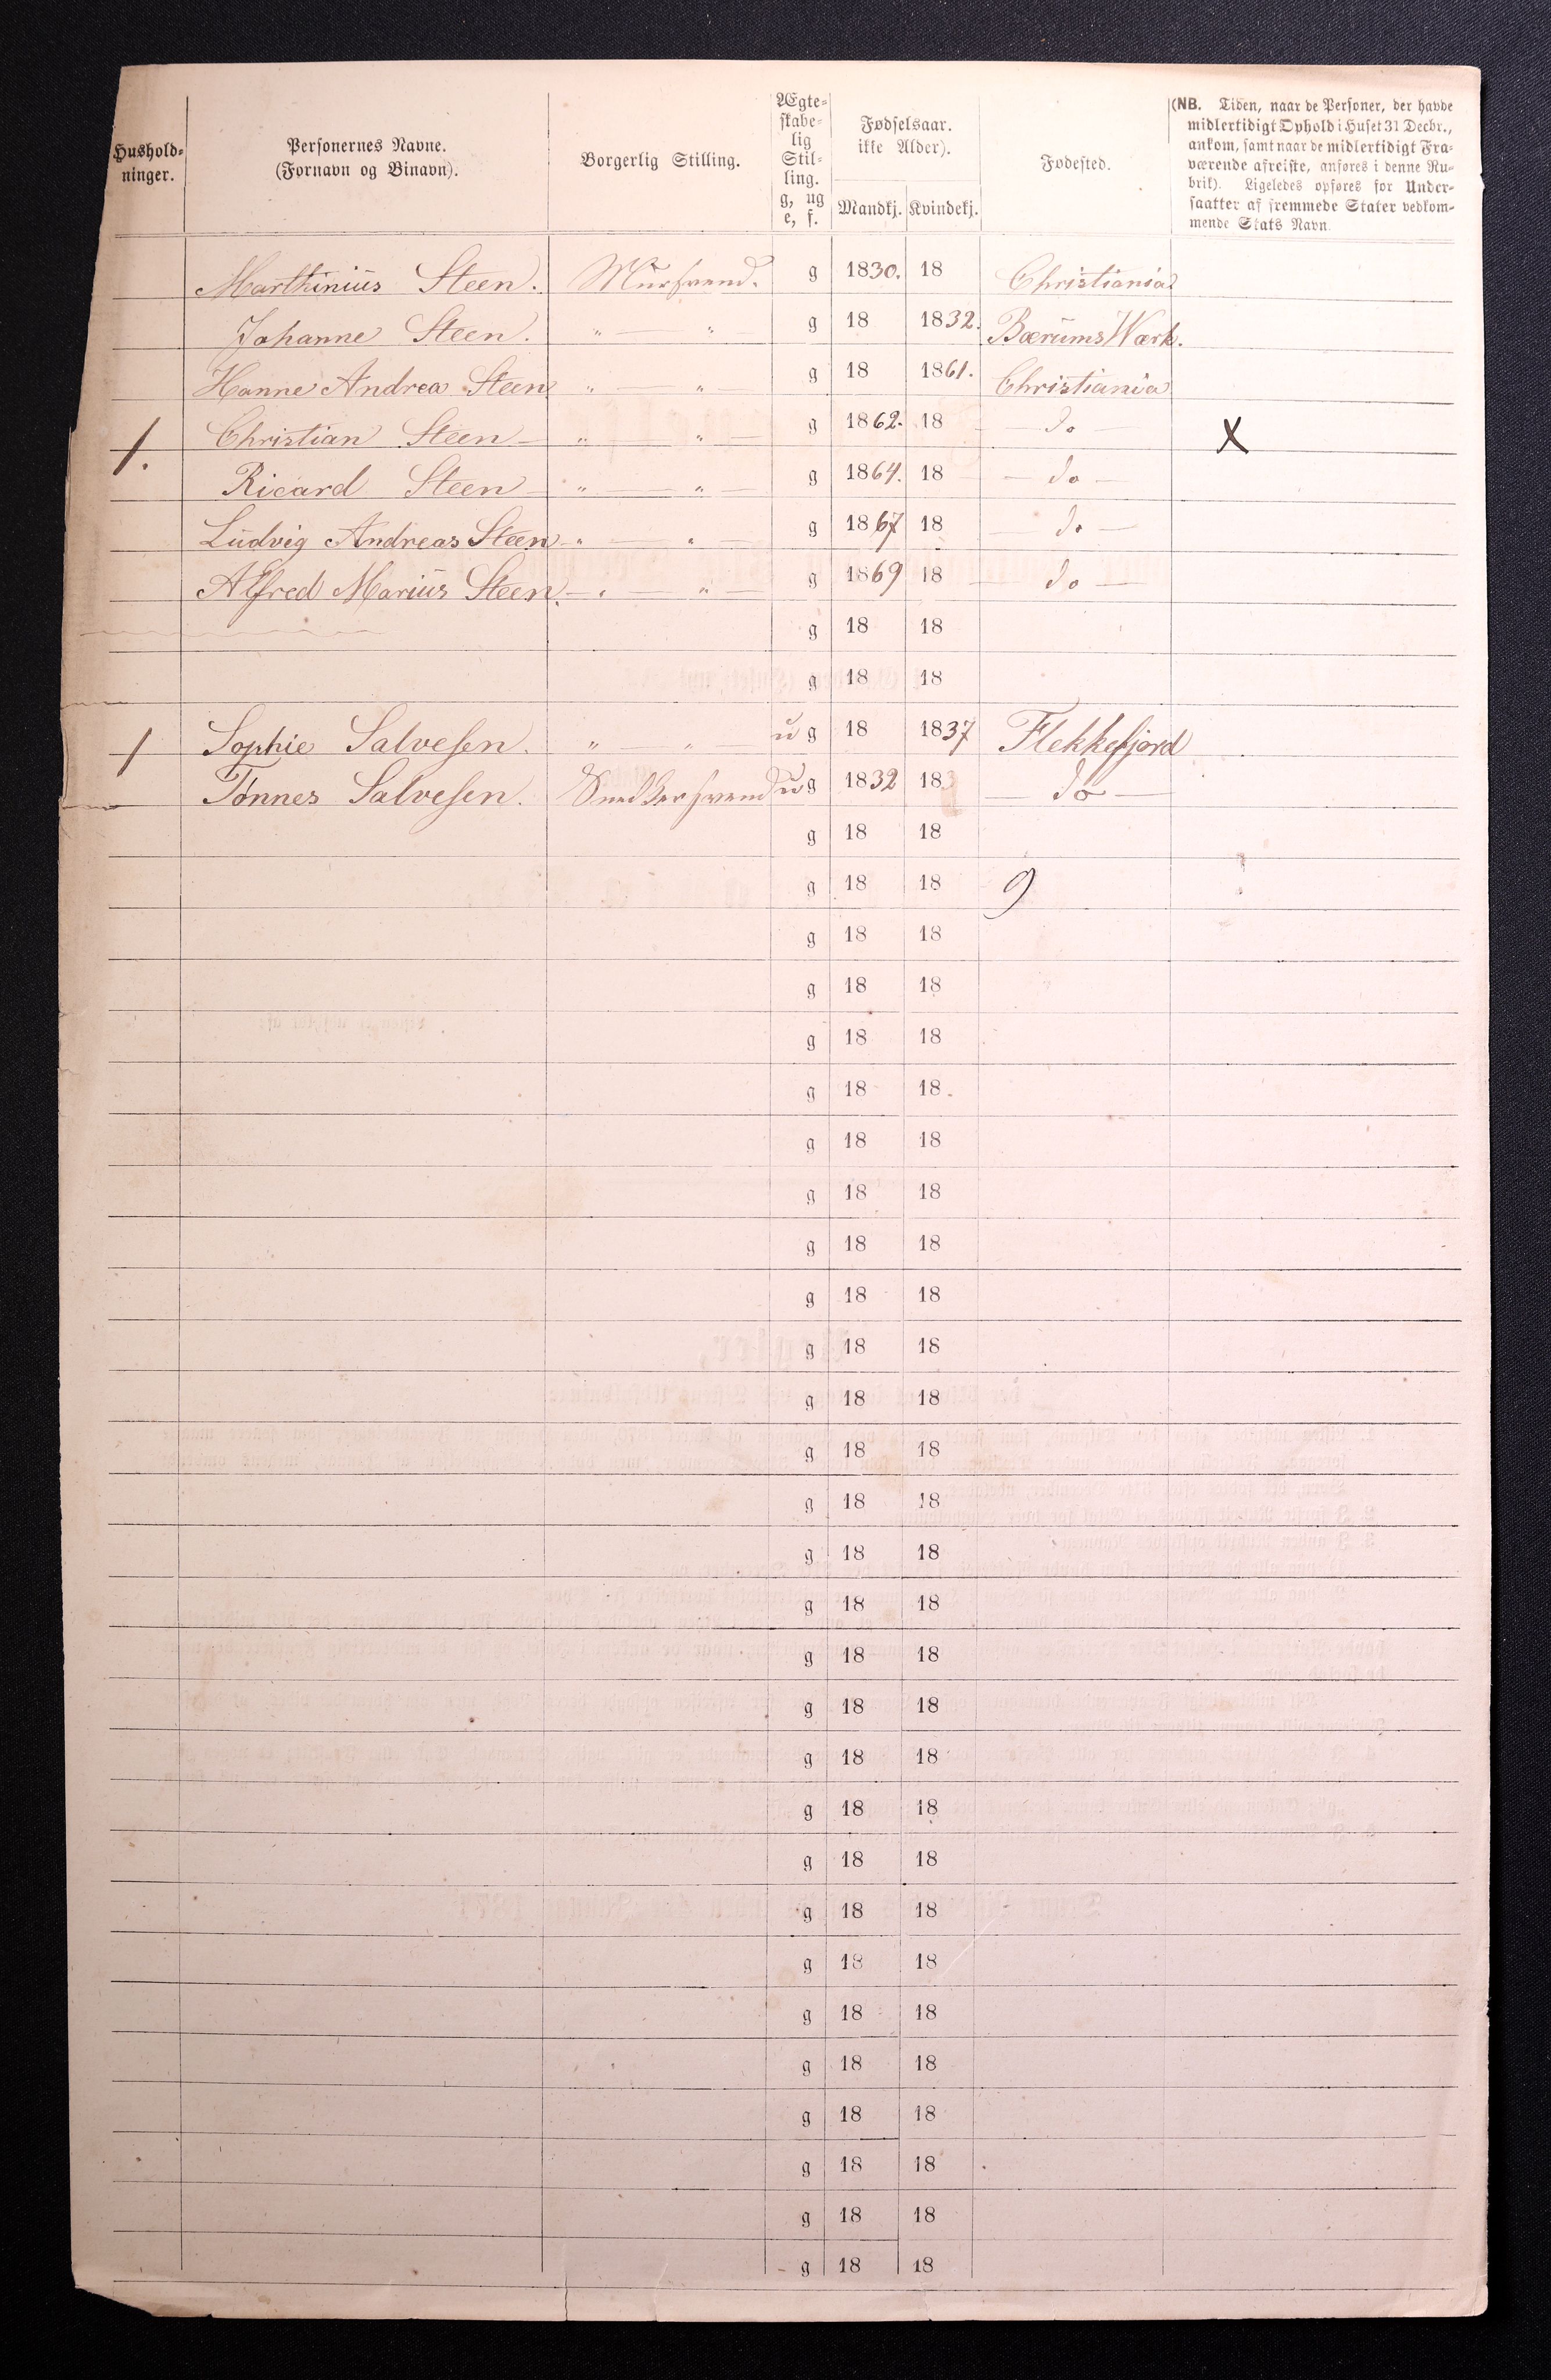 Hushold-
ninger.
Personernes Navne.
(Fornavn og Binavn).
Borgerlig Stilling.
Ægte-
skabe-
lig
Stil-
ling.
g, ug
e, f.
Fødselsaar.
ikke Alder).
Mandkj. Kvindekj.
Fødested.
(NB. Tiden, naar de Personer, der havde
midlertidigt Ophold i Huset 31 Decbr.,
ankom, samt naar de midlertidigt Fra-
værende afreiste, anføres i denne Ru-
brik). Ligeledes opføres for Under-
saatter af fremmede Stater vedkom-
mende Stats Navn.
Marthinius Steen. Mursvend. g 1830. 18 Christiania
Johanne Steen. " — " — g 18 1832. Bærums Værk.
Hanne Andrea Steen " — " — g 18 1861. Christiania
1. Christian Steen — " — " — g 1862. 18 — do — X
Ricard Steen — " — " — g 1864. 18 — do —
Ludvig Andreas Steen — " — " — g 1867 18 — do —
Alfred Marius Steen. — " — " — g 1869 18 — do —
g 18 18
g 18 18
1 Sophie Salvesen. " — " — ug 18 1837 Flekkefjord
Tønnes Salvesen. Snedkersvend ug 1832 183 — do —
g 18 18
g 18 18 9
g 18 18
g 18 18
g 18 18
g 18 18
g 18 18
g 18 18
g 18 18
g 18 18
g 18 18
g 18 18
g 18 18
g 18 18
g 18 18
g 18 18
g 18 18
g 18 18
g 18 18
g 18 18
g 18 18
g 18 18
g 18 18
g 18 18
g 18 18
g 18 18
g 18 18
g 18 18
g 18 18